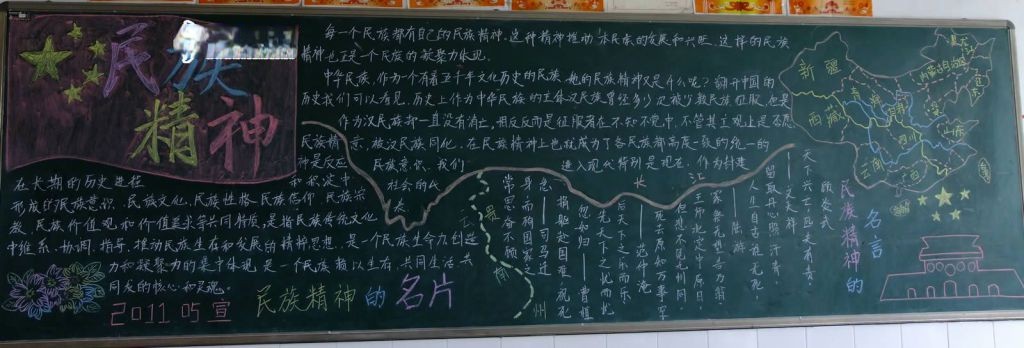 民族
精神
每一个民族都有自己的民族精神.这种精神推动本民族的发展和兴旺.这样的民族
精神也正是一个民族的凝聚力体现.
中华民族,作为个有着五千年文化历史的民族.她的民族精神又是什么呢?翻开中国的
历史我们可以看见.历史上作为中华民族的主体汉民族曾经多少次被少数民族征服.也是
作为汉民族却一直没有消亡,相反反而是征服者在不知不觉中,不管其主观上是否愿
民族精 被汉民族同化.在民族精神上也就成为了各民族都高度一致的统一的
神是反应 民族意识.我们 进入现代特别是现在,作为
在长期的历史进程 和积淀中 社会的
形成的民族意识、民族文化、民族性格、民族信仰、民族宗
教、民族价值观和价值追求等共同特质,是指民族传统文化
中维系、协调、指导、推动民族生存和发展的精神思想.是一个民族生命力,创造
力和凝聚力的集中体现.是一个民族赖以生存,共同生活,共
同发的核心和灵魂。
2011 05 宣
民族精神的名片
长江
云贵
州
民族精神的
名言
顾炎武
天下兴亡匹夫有责.
——文天祥
留取丹心照汗青.
人生自古谁无死,
——陆游
家祭无忘告乃翁.
王师北定中原日,
但悲不见九州同,
死去原知万事空
——范仲淹
后天下之乐而乐
先天下之忧而忧
——曹植
捐躯赴国难 视死
忽如归
——司马迁
常思奋不顾
身而殉国家之
急
新疆
西藏
青海
内蒙古
云南
山东